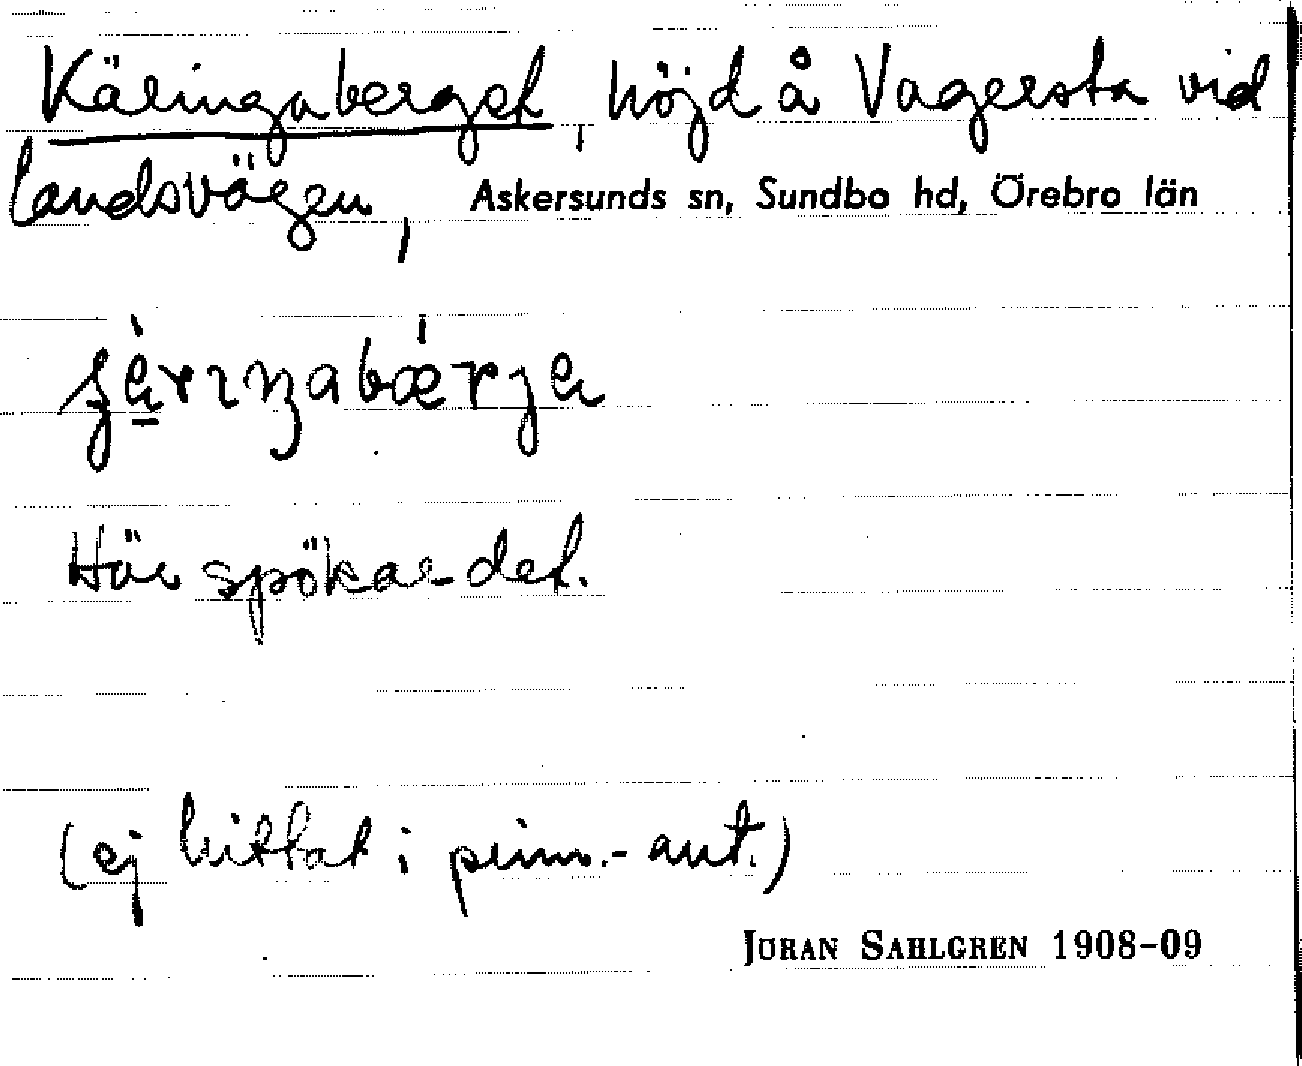 Käringaberget, höjd å Vagersta vid
landsvägen, Askersunds sn, Sundbo hd, Örebro län
Här spökar det.
(ej hittat i prim.-ant.)
JÖRAN SAHLGREN 1908-09